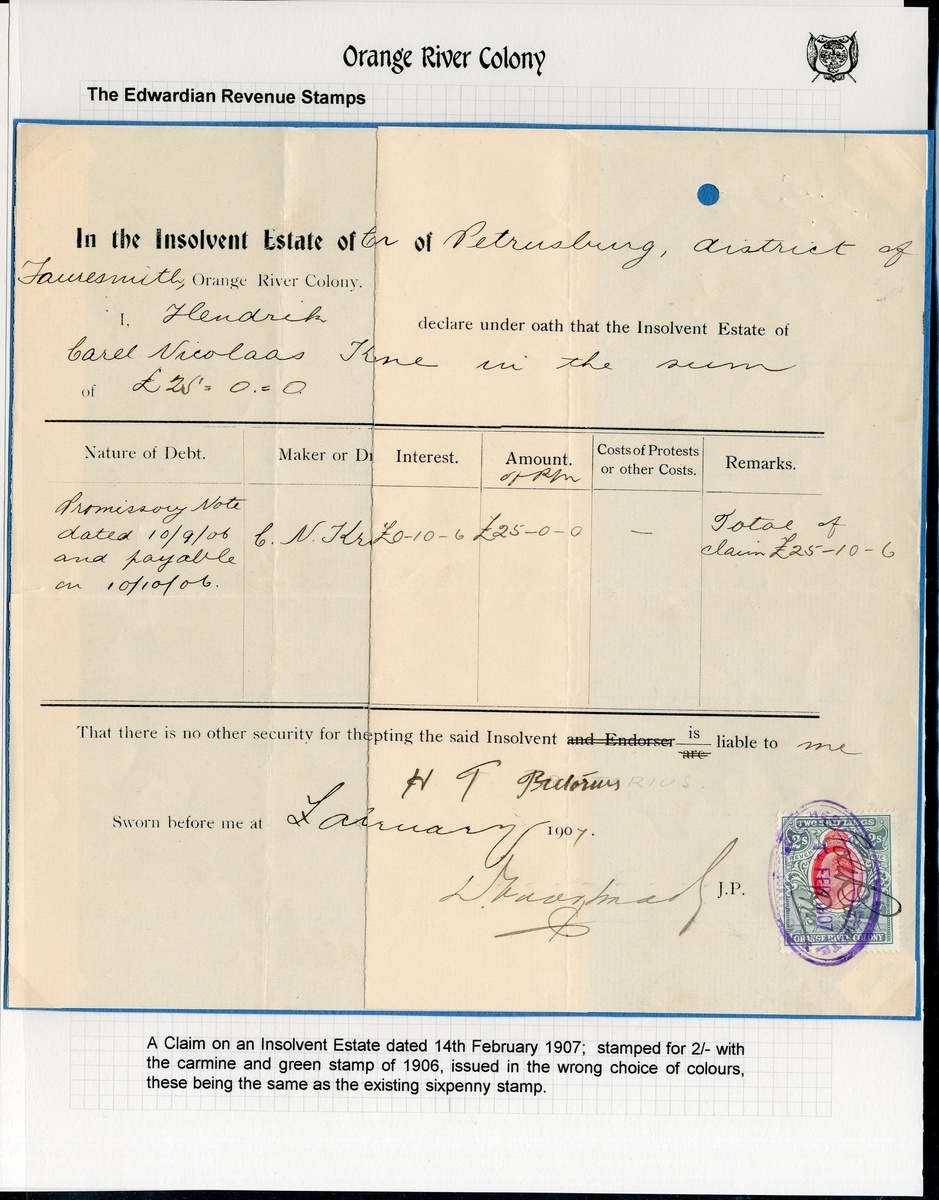 Orange River Colony
The Edwardian Revenue Stamps
In the Insolvent Estate of of Petrusburg, district of
Fauresmith, Orange River Colony.
I, Hendrik
declare under oath that the Insolvent Estate of
Carel Nicolaas K ne in the sum
of £25 = 0 = 0
Nature of Debt. Maker or D Interest. Amount. Costs of Protests or other Costs. Remarks.
Promissory Note
dated 10/9/06
and payable
on 10/10/06.
C. N. Kr £0-10-6 £25-0-0 —
Total of
claim £25-10-6
That there is no other security for the pting the said Insolvent and Endorser is are liable to me
H T Pretorius
Sworn before me at February 1907.
J.P.
TWO SHILLINGS
2s 2s
REVENUE
FEB
07
ORANGE RIVER COLONY
A Claim on an Insolvent Estate dated 14th February 1907; stamped for 2/- with
the carmine and green stamp of 1906, issued in the wrong choice of colours,
these being the same as the existing sixpenny stamp.